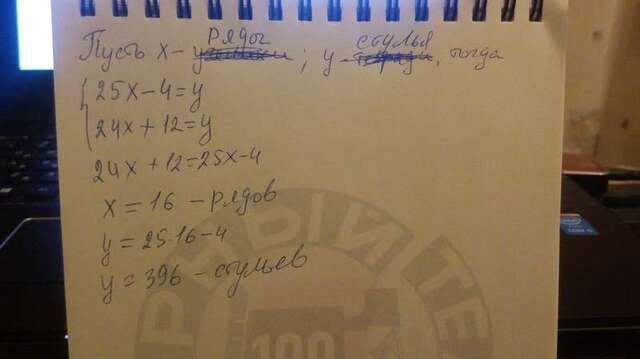 Пусть x - ряды; y - стулья, тогда
25x-4=y
24x+12=y
24x+12=25x-4
x=16 - рядов
y=25·16-4
y=396 - стульев
РНЫЙ ТЕ
100